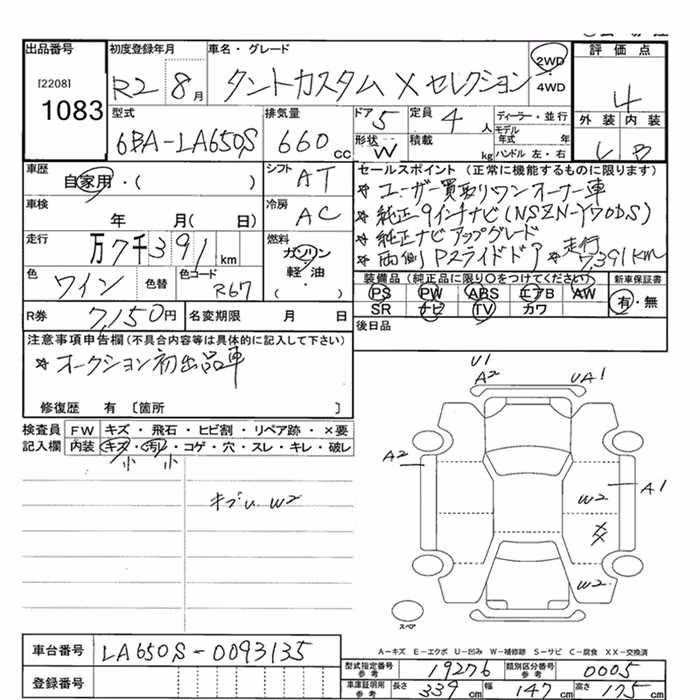 出品番号 初度登録年月 車名・グレード 評価点
[2208] 1083 R2 8月 タントカスタム X セレクション 2WD・4WD 4
型式 排気量 ドア 5 定員 4人 ディーラー・並行 外装 内装
6BA-LA650S 660cc 形状 W 積載 kg モデル年式 年 ハンドル 左・右 B
車歴 自家用・( ) シフト AT セールスポイント (正常に機能するものに限ります)
車検 年 月( 日) 冷房 AC
※ユーザー買取りワンオーナー車
※純正9インチナビ(NSZN-Y70DS)
※純正ナビアップグレード
※両側Pスライドドア ※走行7,391km
走行 万7千391km 燃料 ガソリン・軽・油・( )
色 ワイン 色替 色コード R67
装備品 (純正品に限り○をつけてください) 新車保証書
PS PW ABS エアB AW 有・無
SR ナビ TV カワ
R券 7,150円 名変期限 月 日 後日品
注意事項申告欄(不具合内容等は具体的に記入して下さい)
※オークション初出品車
修復歴 有 〔箇所 〕
検査員記入欄 FW キズ・飛石・ヒビ割・リペア跡・×要
内装 キズ・汚れ・コゲ・穴・スレ・キレ・破レ
小 小
W2
U1
A2 UA1
A2 A1
W2
W2
スペア
A-キズ E-エクボ U-凹み W-補修跡 S-サビ C-腐食 XX-交換済
車台番号 LA650S-0093135
登録番号
型式指定番号 参考 19276 類別区分番号 参考 0005
車庫証明用 参考 長さ 339cm 幅 147cm 高さ 175cm